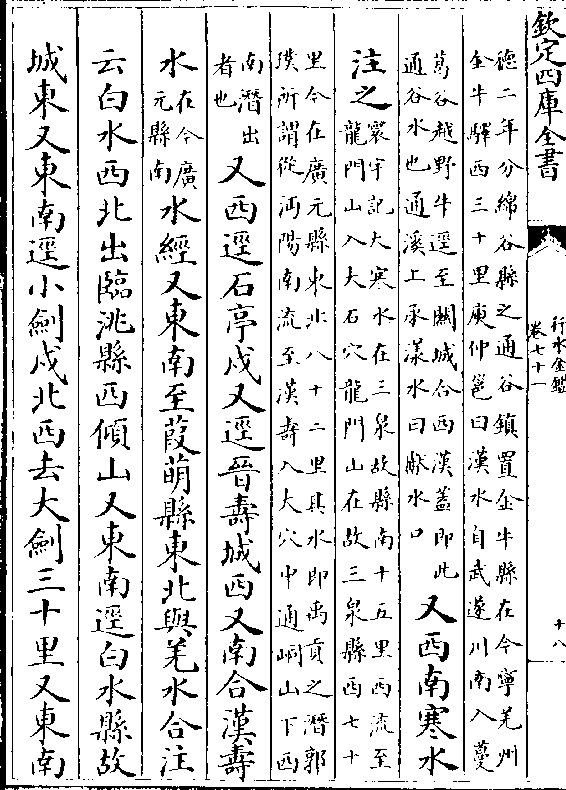 欽定四庫全書
行水金鑑
卷七十一
十八
德二年分綿谷縣之通谷鎮置金牛縣在今寧羌州
金牛驛西三十里庾仲邕曰漢水自武遂川南入蔓
葛谷越野牛逕至關城合西漢蓋即此
通谷水也通溪上承漾水曰獻水口
又西南寒水
注之
寰宇記大寒水在三泉故縣南十五里西流至
龍門山入大石穴龍門山在故三泉縣西七十
里今在廣元縣東北八十二里其水即禹貢之潛郭
璞所謂從沔陽南流至漢壽入大穴中通峒山下西
南潛出
者也
又西逕石亭戍又逕晉壽城西又南合漢壽
水
在今廣
元縣南
水經又東南至葭萌縣東北與羌水合注
云白水西北出臨洮縣西傾山又東南逕白水縣故
城東又東南逕小劍戍北西去大劍三十里又東南